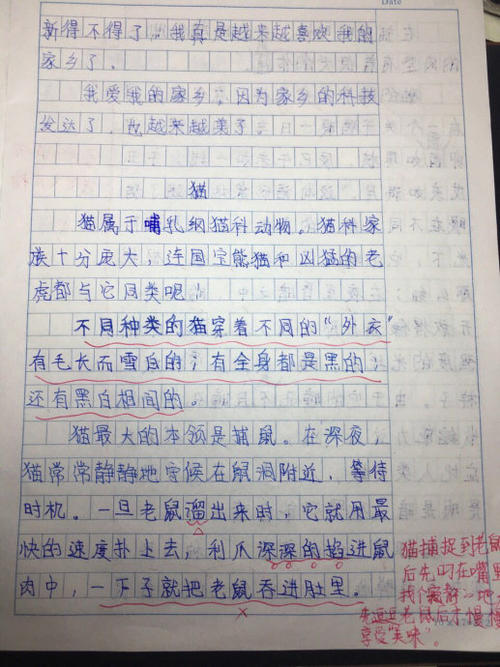 Date
新得不得了。我真是越来越喜欢我的
家乡了。
我爱我的家乡，因为家乡的科技
发达了，也越来越美了。
猫
猫属于哺乳纲猫科动物。猫科家
族十分庞大，连国宝熊猫和凶猛的老
虎都与它同类呢！
不同种类的猫穿着不同的“外衣”
有毛长而雪白的；有全身都是黑的；
还有黑白相间的。
猫最大的本领是捕鼠。在深夜，
猫常常静静地守候在鼠洞附近，等待
时机。一旦老鼠溜出来时，它就用最
快的速度扑上去，利爪深深的掐进鼠
肉中，一下子就把老鼠吞进肚里。
猫捕捉到老鼠
后先叼在嘴里
找个安静的地
先逗逗老鼠后才慢慢
享受“美味”。